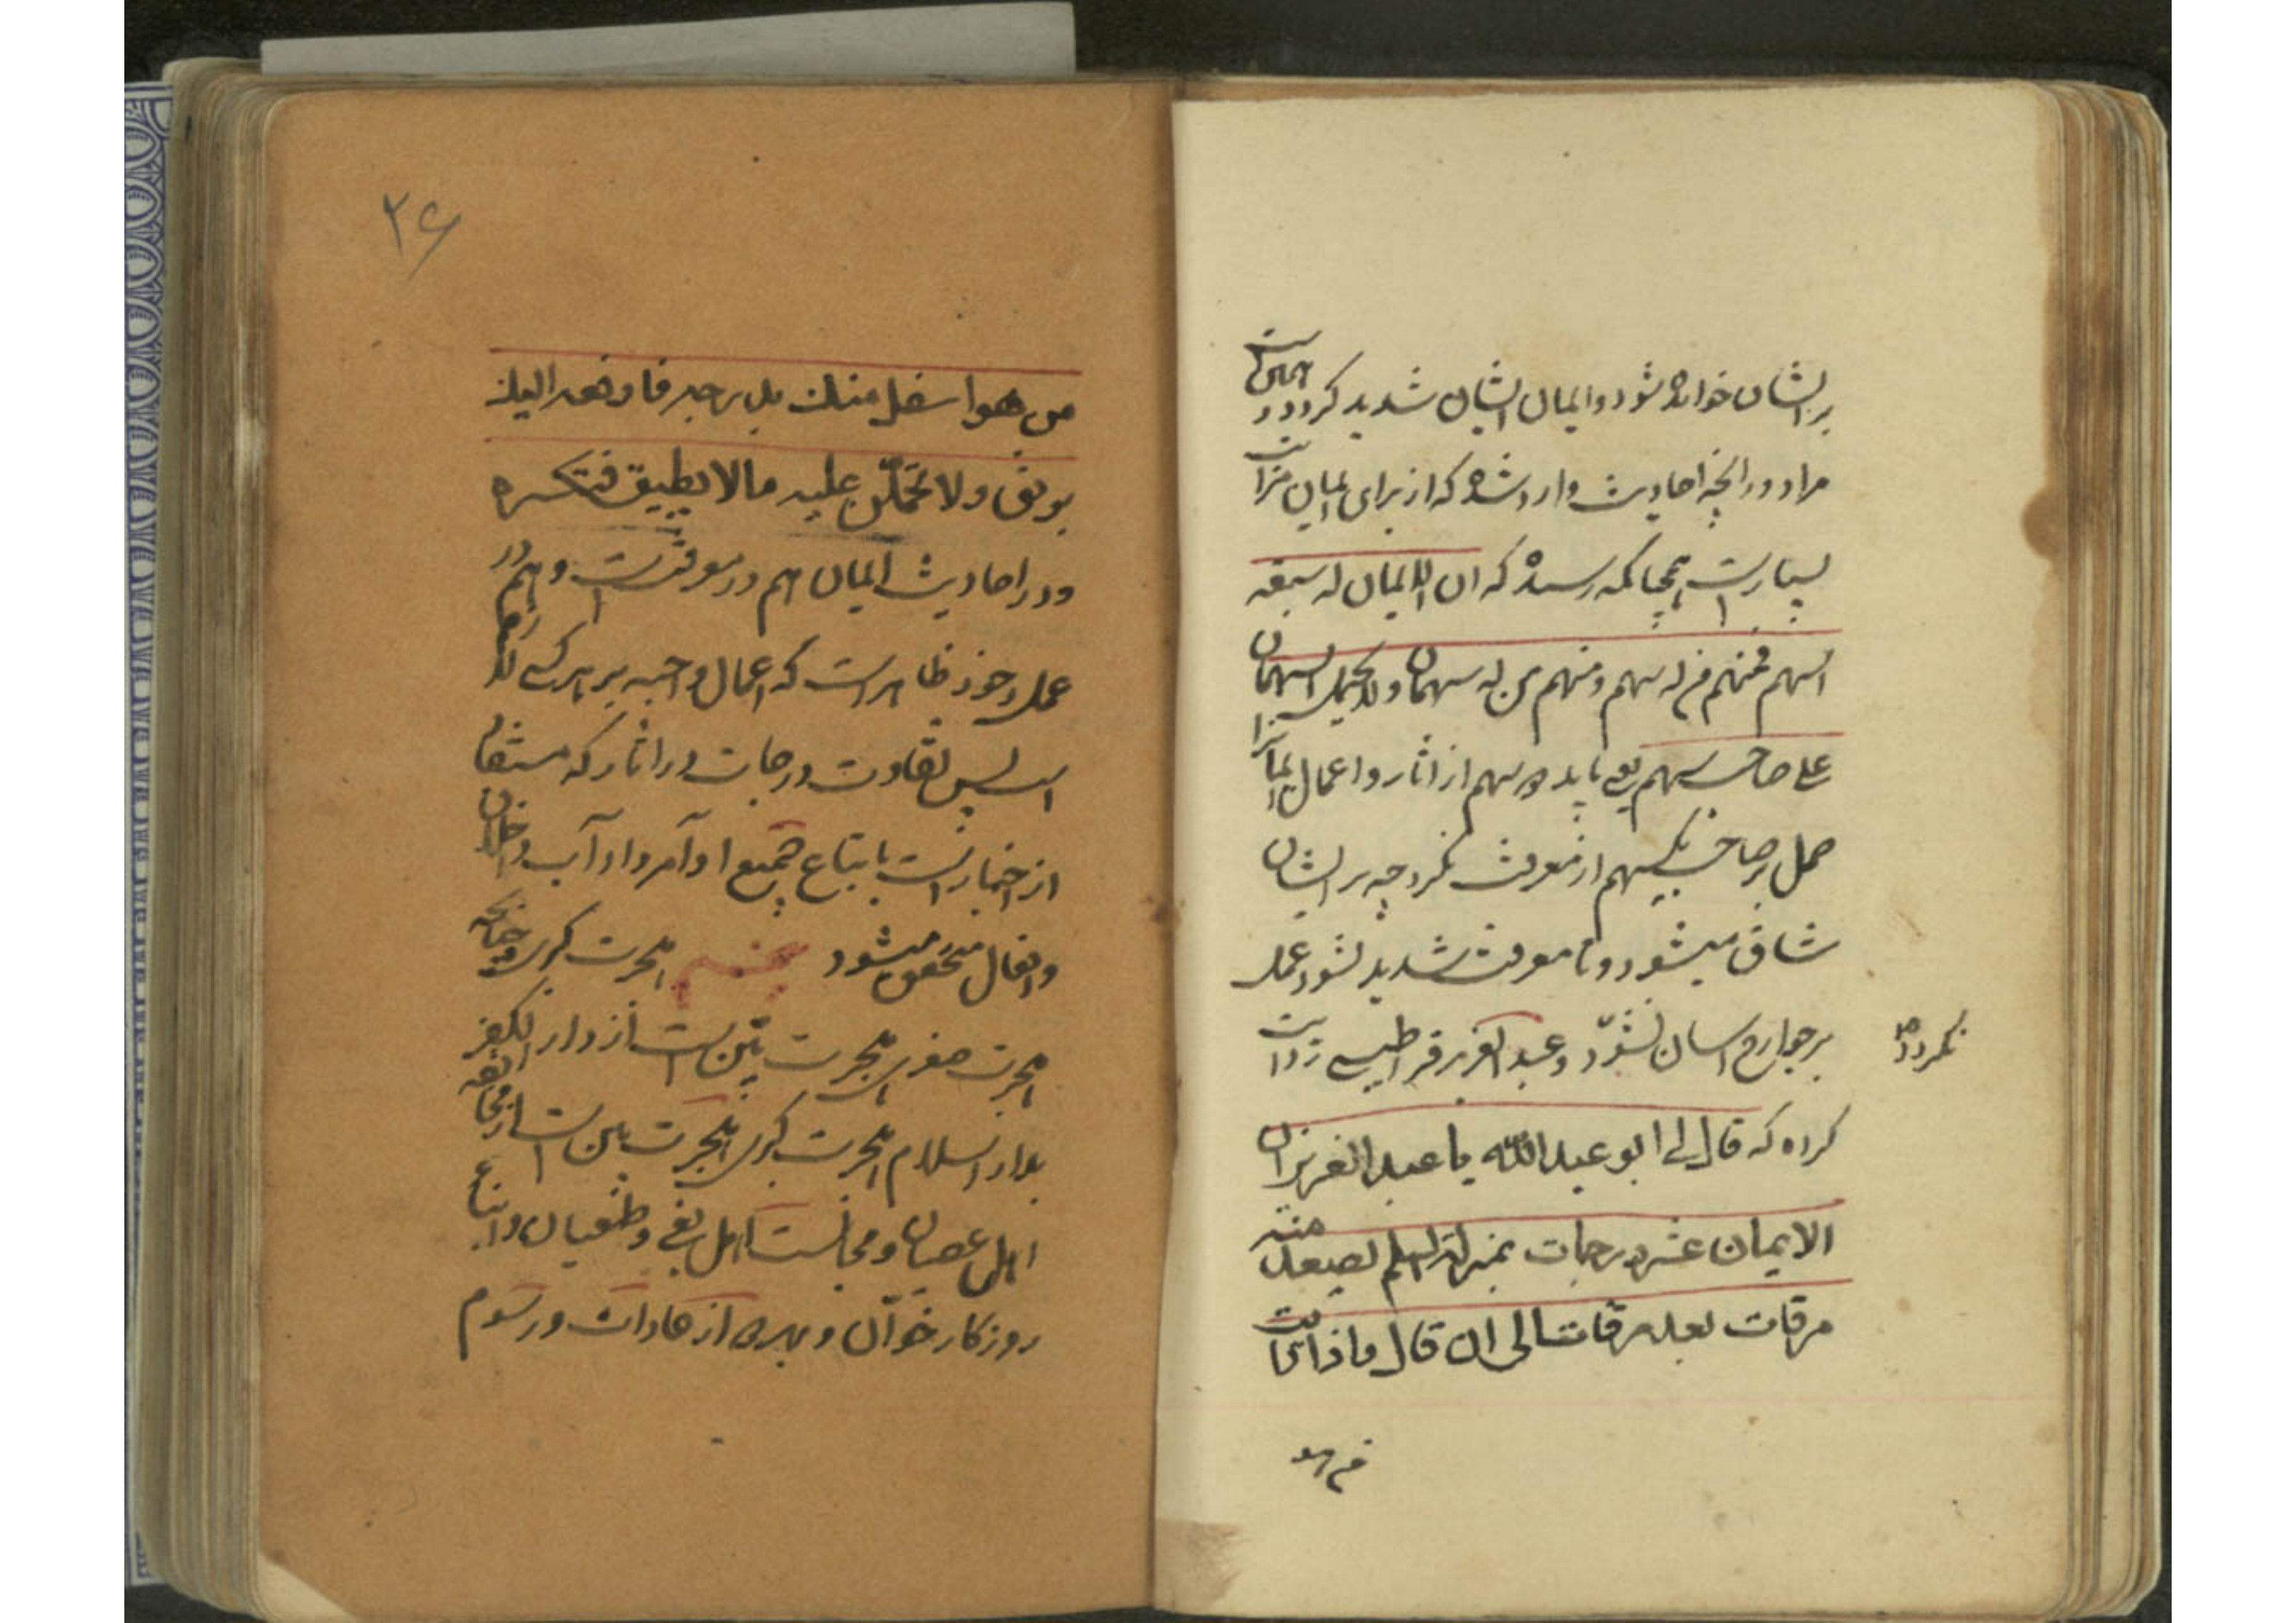 بر ایشان خوانده شود و ایمان ایشان شدید کردد و همین است
مراد و در آنچه احادیث وارد شده که از برای ایمان مراتب
بسیار است همچنانکه رسیده که ان الایمان له سبعة
اسهم فمنهم من له سهم و منهم من له سهمان و لا یحمل السهمان
علی صاحب سهم یعنی باید دو سهم از اثار و اعمال ایمانرا
حمل بر صاحب یکسهم از معرفت نکرد چه بر ایشان
شاق میشود و تا معرفت شدید نشود عمل
بر جوارح اسان نشود و عبد العزیز قراطیسی روایت
نکردد
کرده که قال لی ابو عبد الله یا عبد العزیز ان
الایمان عشر درجات بمنزلة السلم یصعد منه
مرقات بعد مرقات الی ان قال و اذا رایت
من هو
۲۶
من هو اسفل منك بدرجة فارفعه الیك
برفق و لا تحملن علیه ما لا یطیق فتکسره
و در احادیث ایمان هم در معرفتست و هم در
عمل و خود ظاهر است که اعمال واجبه بر هر کس لازم
است پس تفاوت درجات در اثار که مستفاد
از اخبار است باتباع جمیع اوامر و اداب و اخلاق
و افعال متحقق میشود هجرت کبری چنانکه
هجرت صغری هجرت بتن است از دار الکفر
بدار اسلام هجرت کبری هجرت بتن است از مخالفه
اهل عصیان و مجالست اهل بغی و طغیان و ابناع
روزکار خوآن و بدی از عادات و رسوم